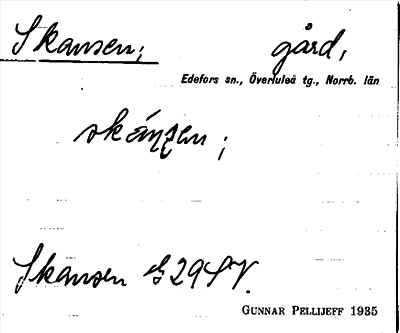 Skansen; gård,
Edefors sn., Överluleå tg., Norrb. län
skánsen;
Skansen G 29 SV.
GUNNAR PELLIJEFF 1935